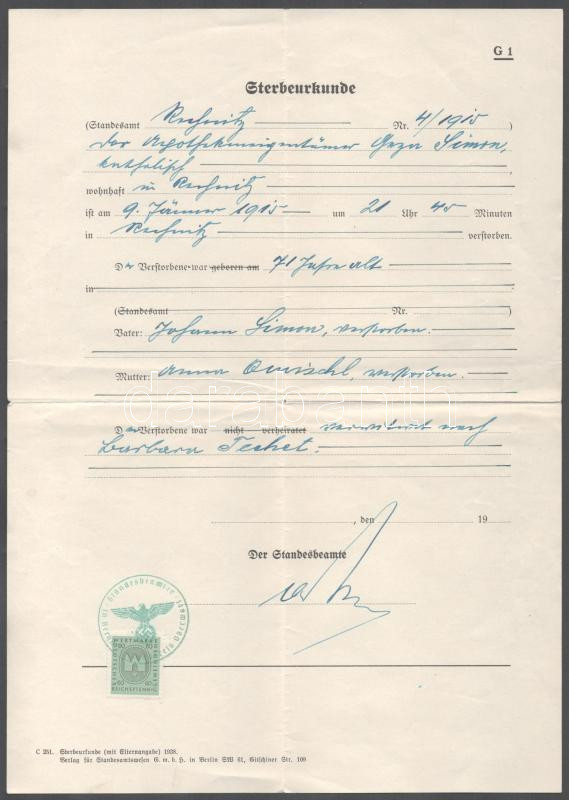 G 1
Sterbeurkunde
(Standesamt Rechnitz Nr. 4/1915)
Der Apothekeneigentümer Geza Simon,
katholisch
wohnhaft in Rechnitz
ist am 9. Jänner 1915 um 21 Uhr 45 Minuten
in Rechnitz verstorben.
Der Verstorbene war geboren am 71 Jahre alt
in
(Standesamt Nr. )
Vater: Johann Simon, verstorben.
Mutter: Anna verstorben.
databanth
Der Verstorbene war nicht verheiratet verwitwet nach
Barbara Techet.
, den 19
Der Standesbeamte
Der Standesbeamte in
WERTMARKE
60 60
60 60
REICHSPFENNIG
C 251. Sterbeurkunde (mit Elternangabe) 1938.
Verlag für Standesamtswesen G. m. b. H. in Berlin SW 61, Gitschiner Str. 109